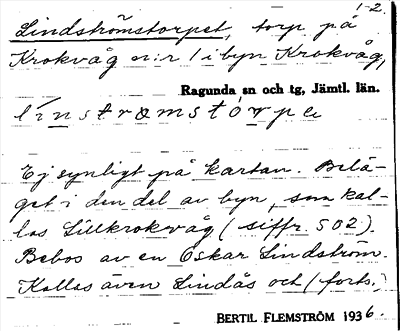 1-2.
Lindströmstorpet, torp på
Krokvåg n:r 1 i byn Krokvåg,
Ragunda sn och tg, Jämtl. län.
línstrømstòrpe
Ej synligt på kartan. Belä-
get i den del av byn, som kal-
las Lillkrokvåg (siffr. 502).
Bebos av en Oskar Lindström.
Kallas även Lindås och (forts.)
BERTIL FLEMSTRÖM 1936.